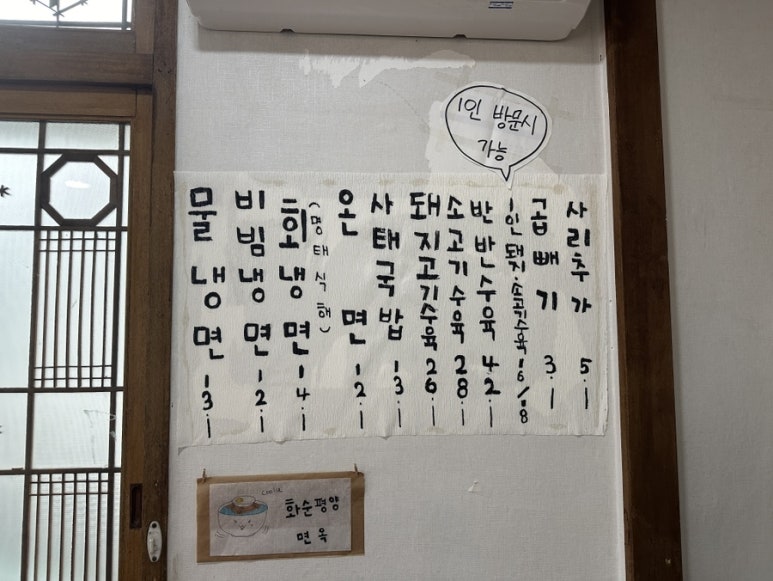 1인 방문시
가능
물냉면 13.-
비빔냉면 12.-
회냉면 14.-
(명태식해)
온면 12.-
사태국밥 13.-
돼지고기수육 26.-
소고기수육 28.-
반반수육 42.-
1인 돼지·소고기수육 16/18
곱빼기 3.-
사리추가 5.-
화순평양
면옥